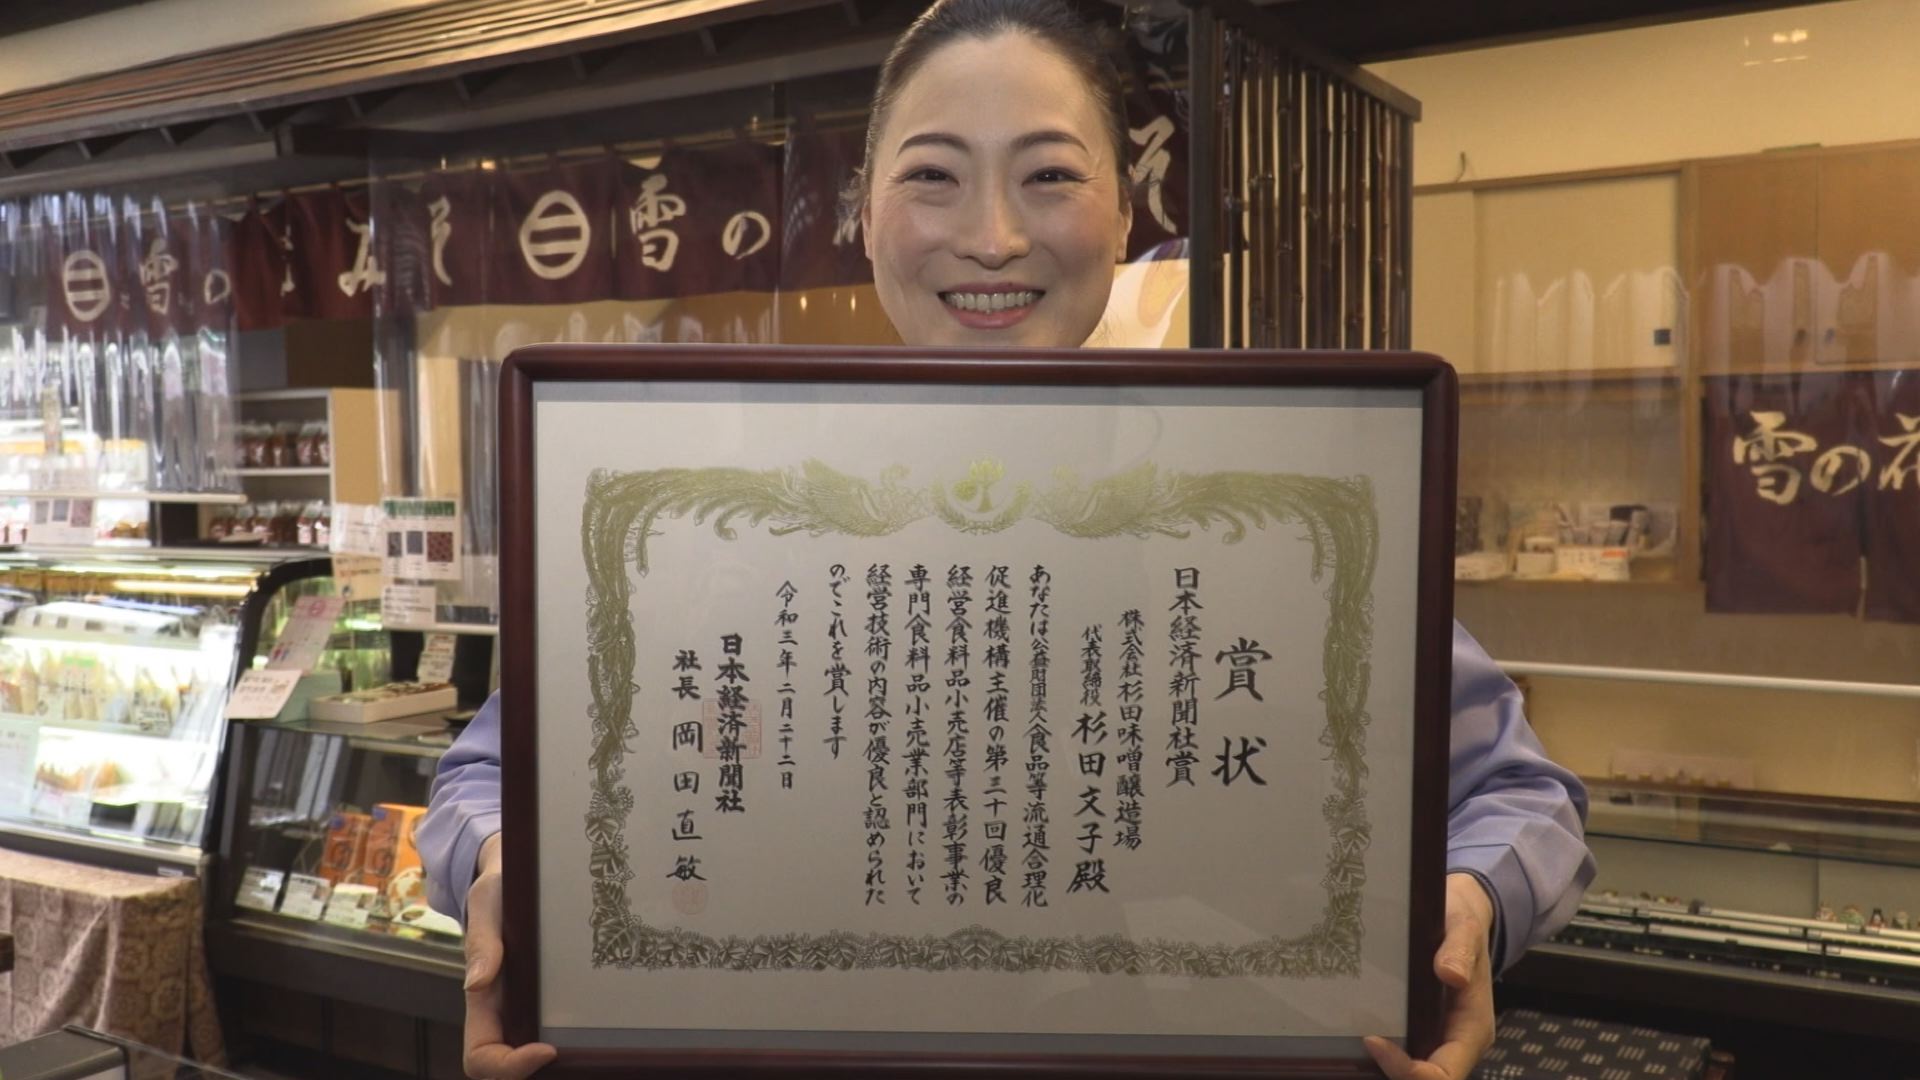 賞状
日本経済新聞社賞
株式会社杉田味噌醸造場
代表取締役 杉田文子殿
あなたは公益財団法人食品等流通合理化
促進機構主催の第三十回優良
経営食料品小売店等表彰事業の
専門食料品小売業部門において
経営技術の内容が優良と認められた
のでこれを賞します
令和三年二月二十二日
日本経済新聞社
社長 岡田直敏
雪の
みそ
雪の
そ
雪の花